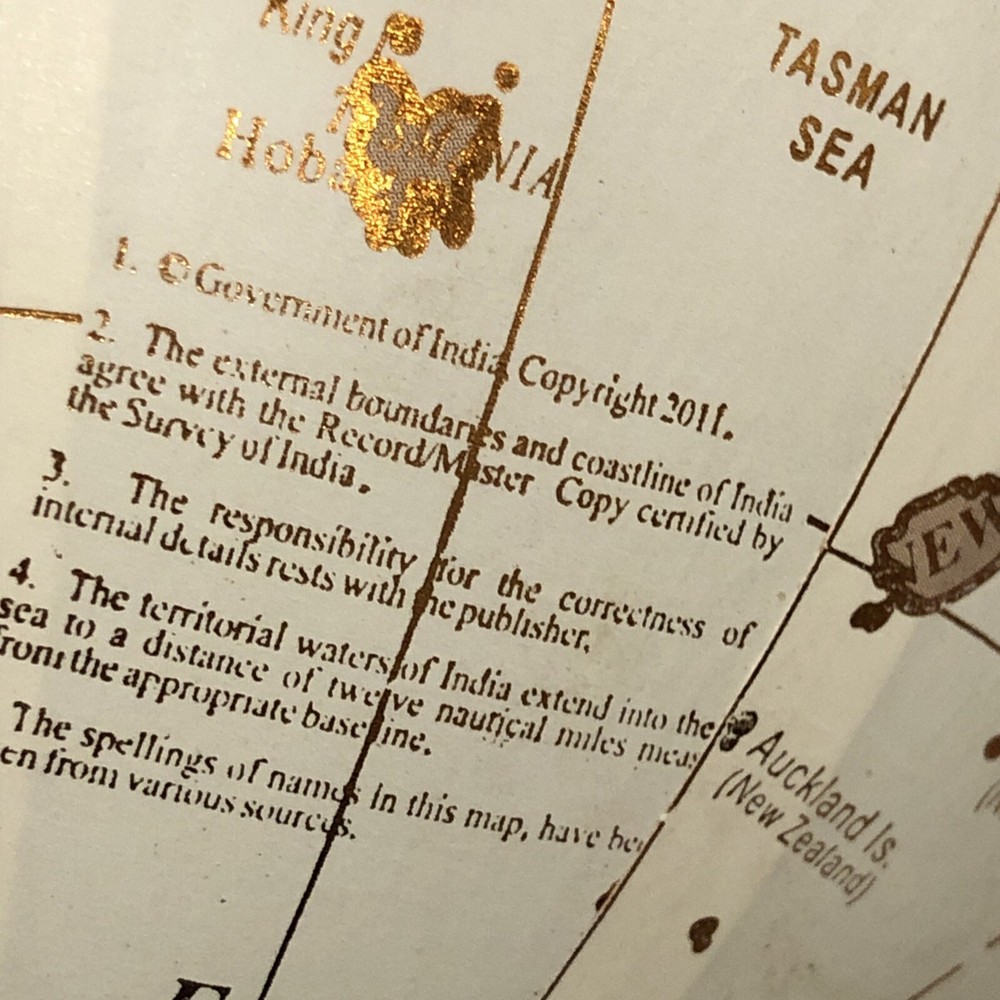 King
TASMAN
SEA
NIA
1. © Government of India, Copyright 2011.
2. The external boundaries and coastline of India
agree with the Record/Master Copy certified by
the Survey of India.
3. The responsibility for the correctness of
internal details rests with the publisher.
4. The territorial waters of India extend into the
sea to a distance of twelve nautical miles
from the appropriate baseline.
The spellings of names in this map, have
from various sources.
NEW
Auckland Is.
(New Zealand)